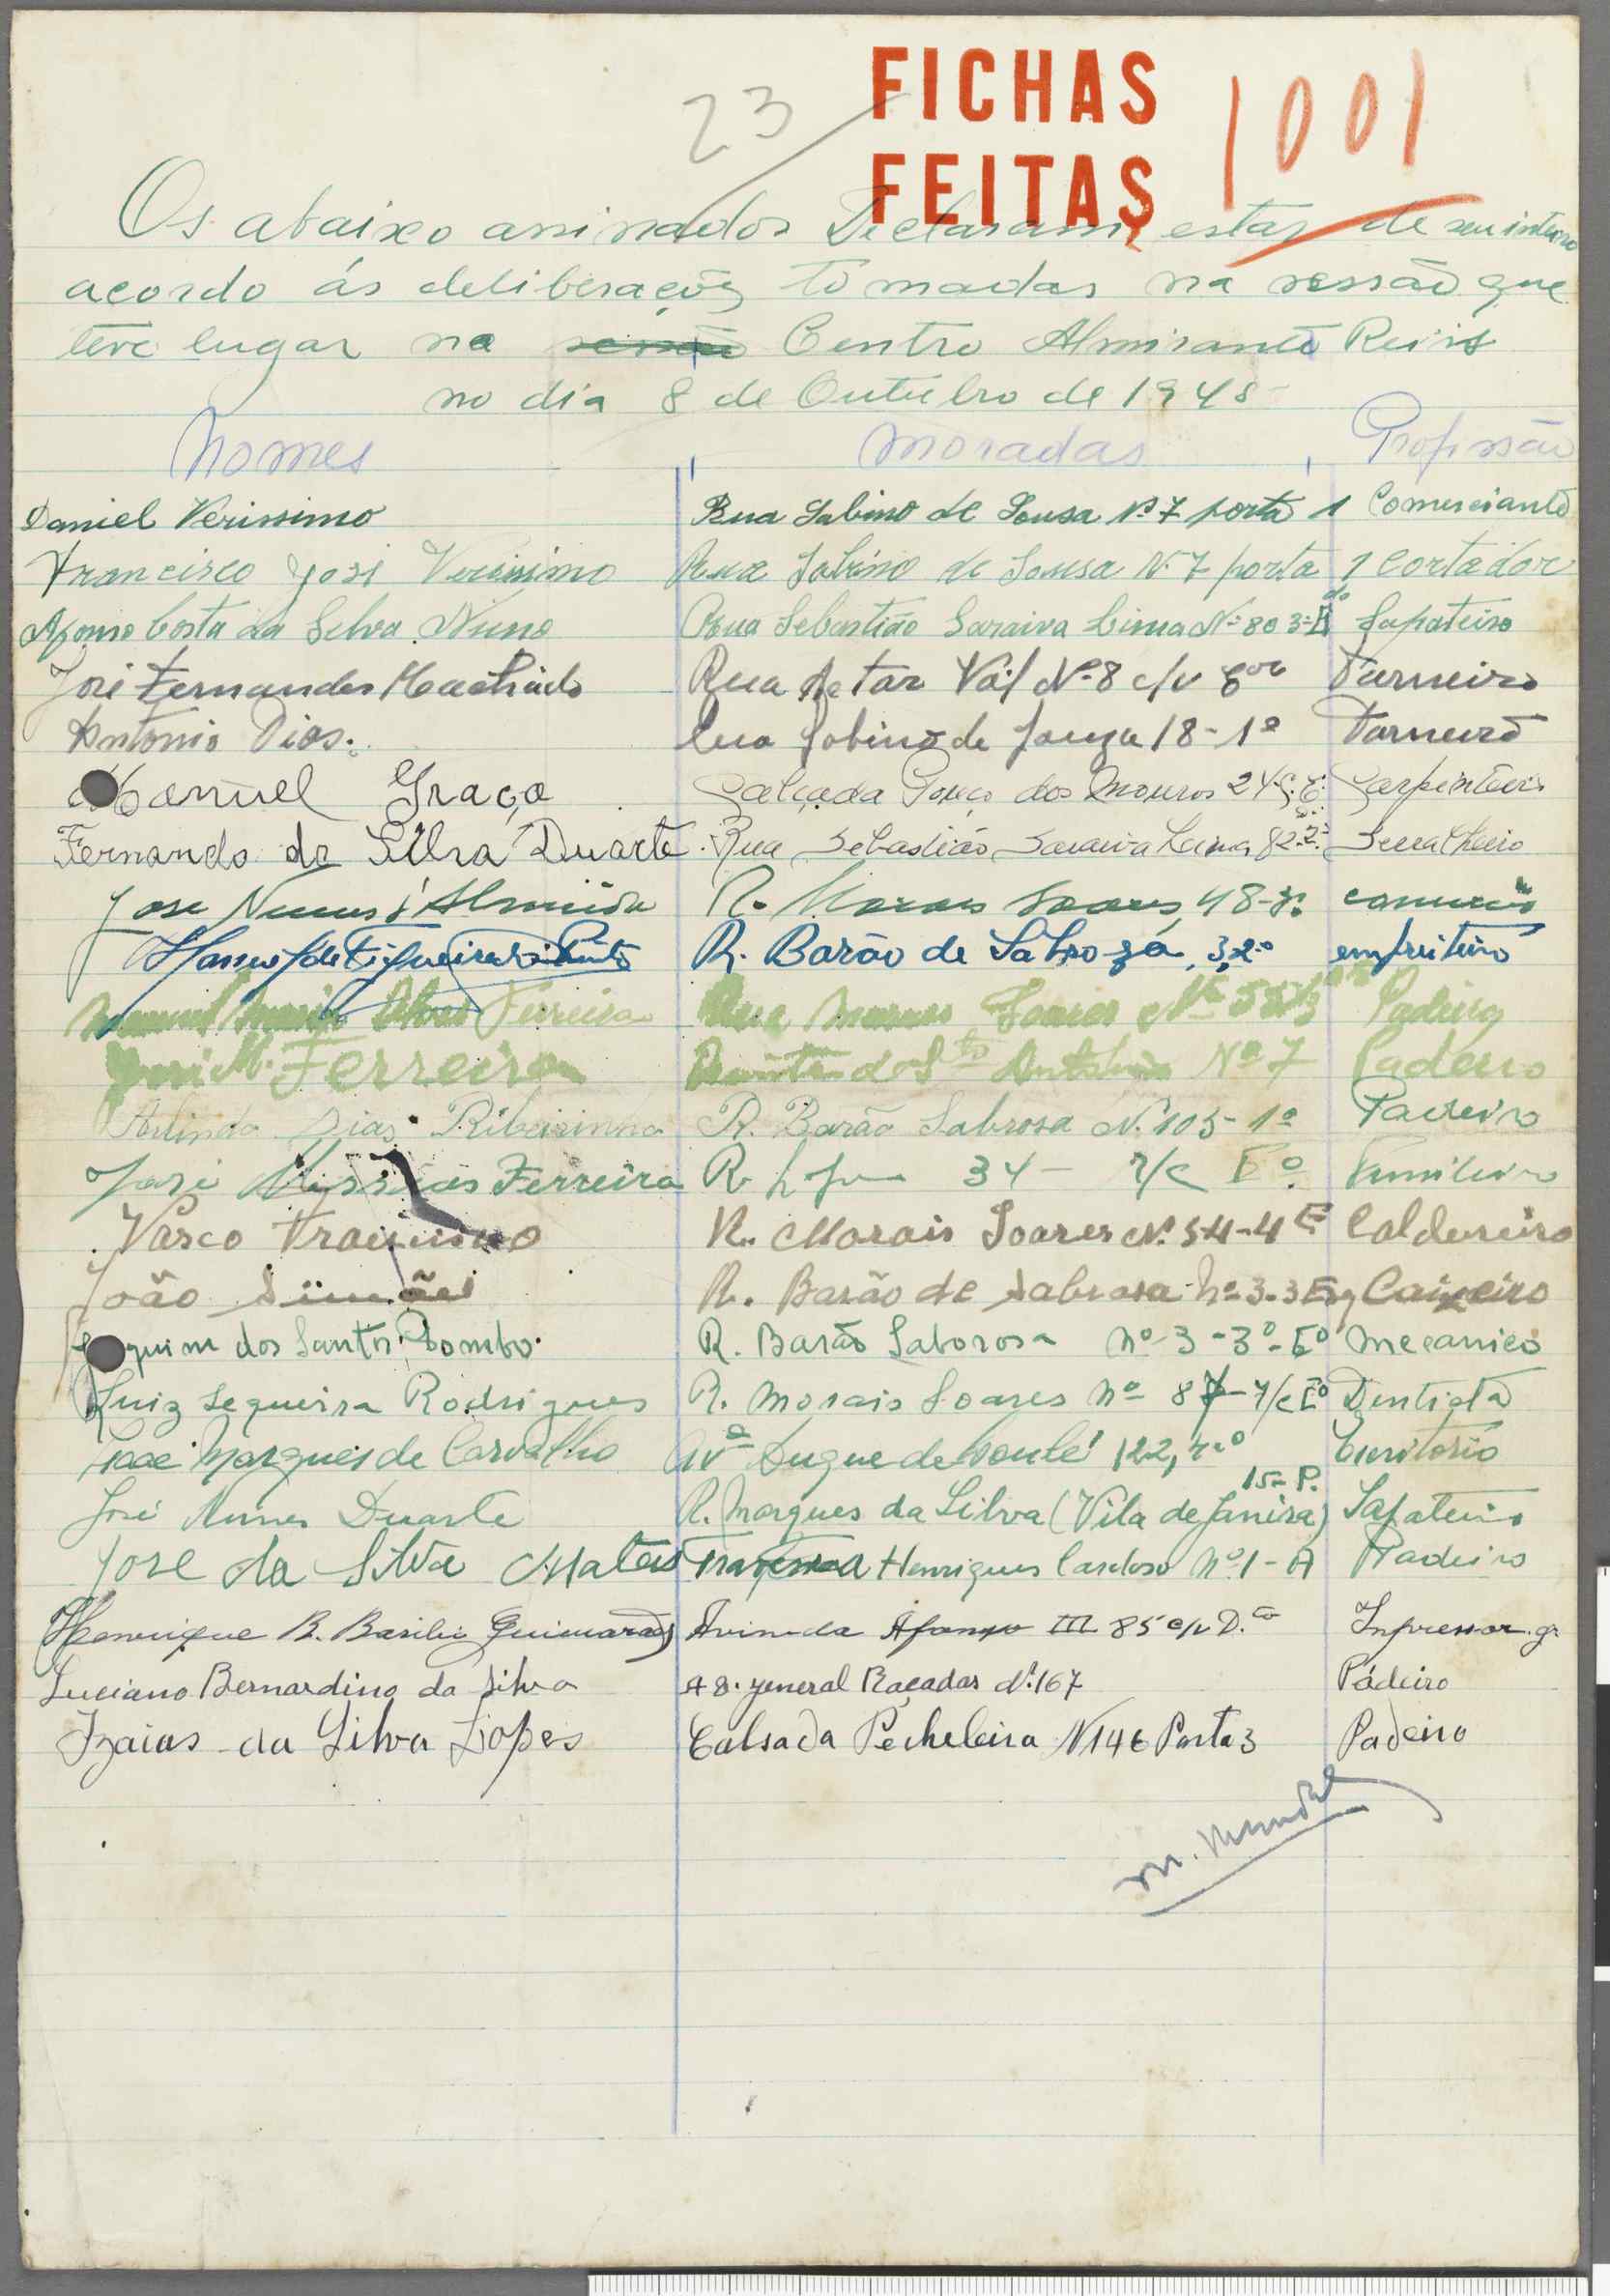 23
FICHAS
FEITAS
1001
Os abaixo assinados Declaram, estar de seu inteiro
acordo ás deliberações tomadas na sessão que
teve lugar na Centro Almirante Reis
no dia 8 de Outubro de 1945
Nomes Moradas Profissão
Daniel Verissimo Rua Sabino de Sousa Nº 7 porta 1 Comerciante
Francisco José Verissimo Rua Sabino de Sousa N. 7 porta 1 Cortador
Afonso Costa da Selva Nuno Rua Sebastião Saraiva Lima Nº 80 3º E do Sapateiro
José Fernandes Machado Rua Actor Val Nº 8 c/v Torneiro
Antonio Dias. Rua Sabino de Souza 18-1º Torneiro
Manuel Graça Calçada Poço dos Mouros 24 Carpinteiro
Fernando da Silva Duarte Rua Sebastião Saraiva Lima 82 Serralheiro
José Nunes d'Almeida R. Morais Soares, 48-3º comercio
de Figueiredo Pinto R. Barão de Sabroza, 3,2º empreiteiro
Manuel Maria Alves Ferreira Rua Moraes Soares Nº Padeiro
José M. Ferreira Quinta do Sto António Nº 7 Padeiro
Arlindo Dias Ribeirinho R. Barão Sabrosa Nº 105-1º Padeiro
José Messias Ferreira R. 34 - r/c Eº Funileiro
Vasco R. Morais Soares Nº 54-4 E Caldeireiro
João Simões R. Barão de Sabrosa Nº 3-3 Esq Caixeiro
Joquim dos Santos Pombo. R. Barão Saborosa Nº 3-3º-Eº Mecanico
Luiz Sequeira Rodrigues R. Morais Soares nº 87-r/c Eº Dentista
Marques de Carvalho Avª Duque de Loulé 122, Escritorio
15-P.
José Nunes Duarte R. Marques da Silva (Vila de Janira) Sapateiro
José da Silva Matos Travessa Henriques Cardoso Nº 1-A Padeiro
Henrique B. Basilio Guimarães Avinida Afonso III 85 c/v D.to Inpressor. gr
Luciano Bernardino da Silva general Raçadas Nº 167 Pádeiro
Izaias da Silva Lopes Calsada Picheleira N 146 Porta 3 Padeiro